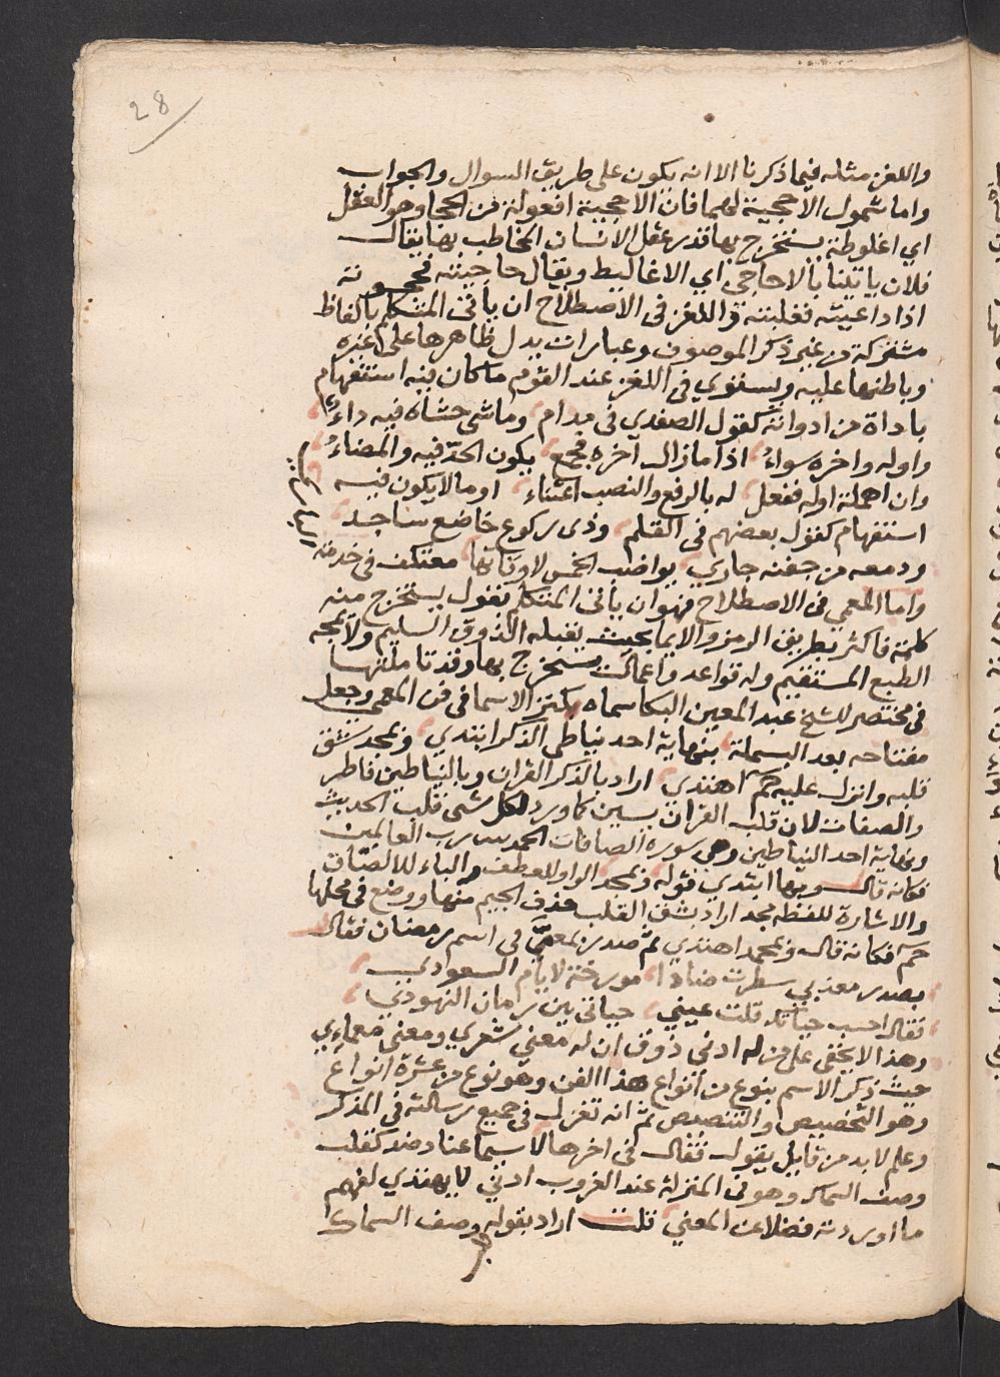 28
واللغز مثله فيما ذكرنا الا انه يكون على طريق السوال والجواب
واما شمول الاحجية لهما فان الاحجية افعولة من الحجا وهو العقل
اي اغلوطة يستخرج بها قدر عقل الانسان المخاطب بها يقال
فلان ياتينا بالاحاجي اي الاغاليط ويقال حاجيته فحجوته
اذا داعيته فغلبته واللغز في الاصطلاح ان ياتى المتكلم بالفاظ
مشتركة من غير ذكر الموصوف وعبارات يدل ظاهرها على غيره
وباطنها عليه ويستوي في اللغز عند القوم ما كان فيه استفهام
باداة من ادواته كقول الصفدي في مدام وما شى حشاه فيه داء
واوله واخره سواء اذا ما زال اخره فجمع يكون الحد فيه والمضاء
وان اهملة اوله ففعل له بالرفع والنصب اعتناء او ما لا يكون فيه
استفهام كقول بعضهم في القلم وذى ركوع خاضع ساجد
ودمعه من جفنه جاري يواضب الخمس لاوقاتها معتكف في خدمة
البارى
واما المعمي في الاصطلاح فهو ان ياتى المتكلم بقول يستخرج منه
كلمة فاكثر بطريق الرمز والايما بحيث يقبله الذوق السليم ولا يمجه
الطبع المستقيم وله قواعد واعمال يستخرج بها وقد تاملتها
في مختصر للشيخ عبد المعين البكا سماه بكنز الاسما في فن المعمى وجعل
مفتاحه بعد البسملة بنهاية احد نياطى الذكر ابتدي وبمجد شق
قلبه وانزل عليه حم اهتدى اراد بالذكر القران وبالنياطين فاطر
والصفات لان قلب القران يسين كما ورد لكل شى قلب الحديث
ونهاية احد النياطين وهي سورة الصافات الحمد لله رب العالمين
فكانه قال وبها ابتدي قوله وبمجد الواو للعطف والباء للالصاق
والاشارة للفظه مجد اراد بشق القلب حذف الجيم منها ووضع في محلها
حم فكانه قال وبمحمد اهتدي ثم صدر بمعمى في اسم رمضان فقال
بصدر معذبي سطرت ضادا مورخة لايام السعودي
فقال احسب حياتك قلت عيني حياتى بين رمان النهودي
وهذا لا يخفى على من له ادنى ذوق ان له معنى شعري ومعنى معماءي
حيث ذكر الاسم بنوع من أنواع هذا الفن وهو نوع من عشرة انواع
وهو التخصيص والتنصيص ثم انه تغزل في جميع رسالته في المذكر
وعلم لا بد من قايل يقول فقال في اخرها لا سيما عناد ضد كقلب
وصف السماك وهو في المنزلة عند الغروب ادنى لا يهتدي لفهم
ما اوردته فضلا عن المعنى قلت اراد بقوله وصف السماك